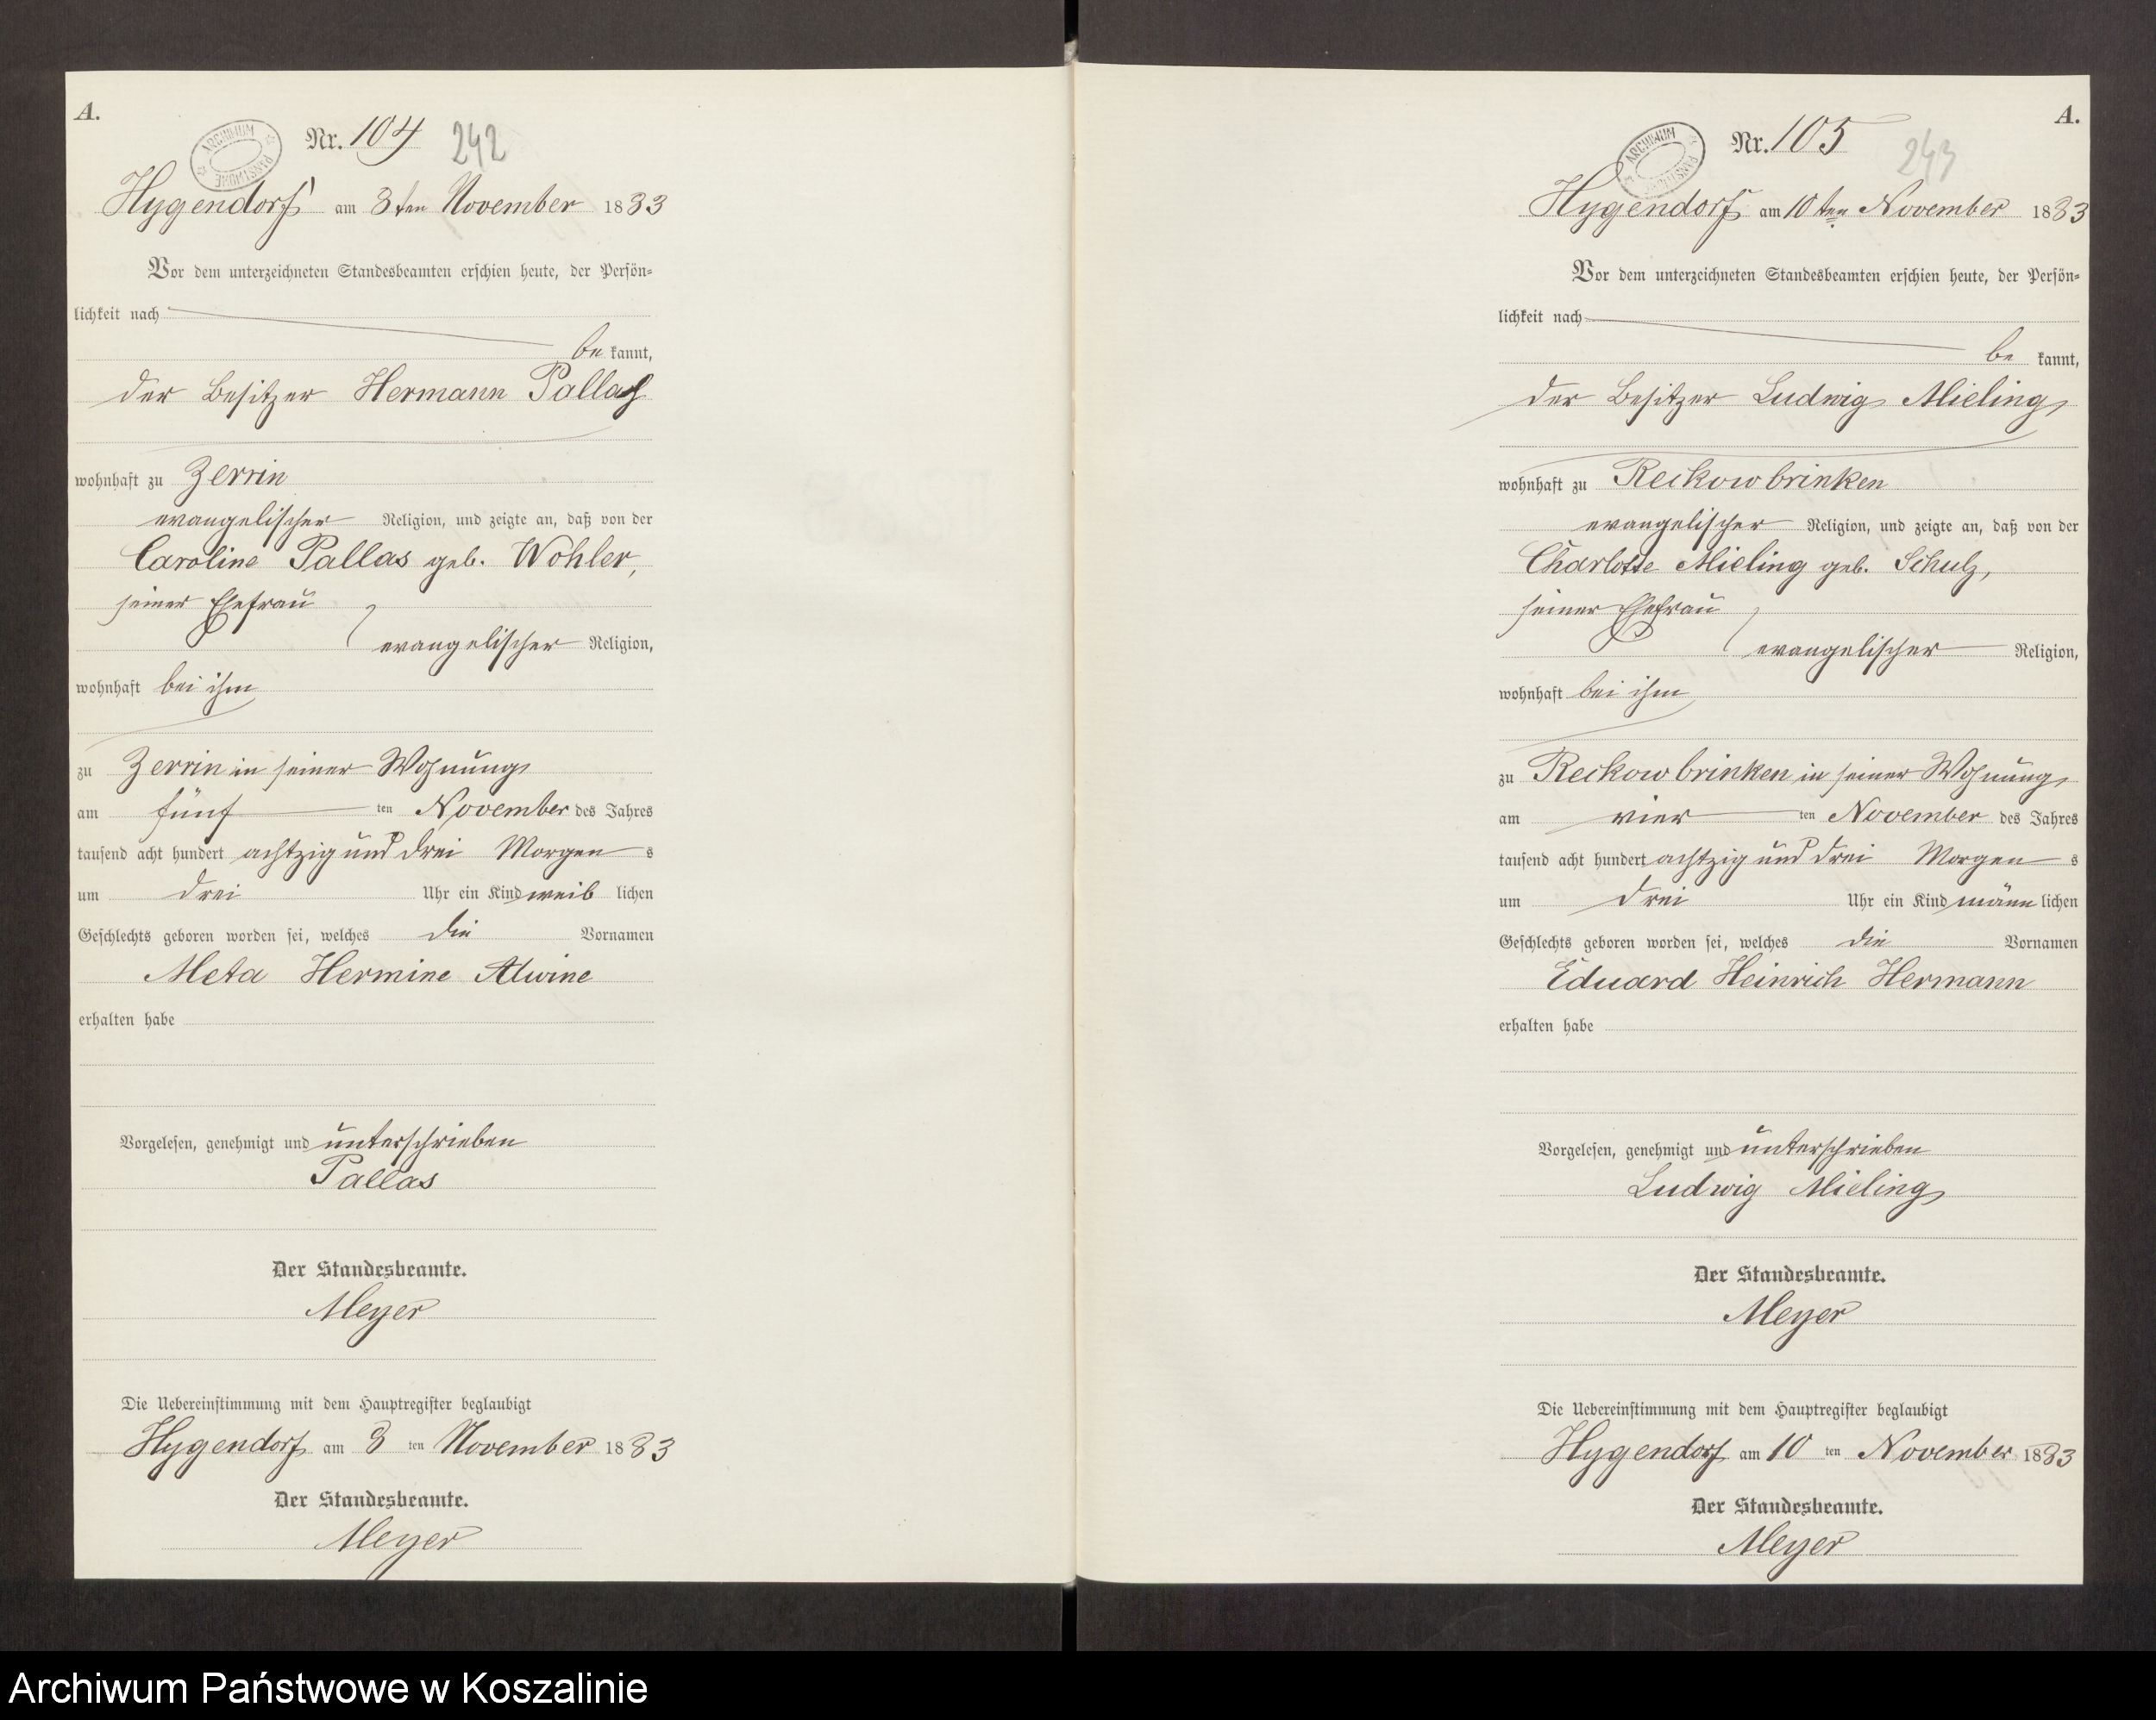 A.
Nr. 104 242
ARCHIWUM PAŃSTWOWE
Hygendorf am 8ten November 1883
Vor dem unterzeichneten Standesbeamten erschien heute, der Persön-
lichkeit nach
be kannt,
der Besitzer Hermann Pallas
wohnhaft zu Zerrin
evangelischer Religion, und zeigte an, daß von der
Caroline Pallas geb. Wohler,
seiner Ehefrau
evangelischer Religion,
wohnhaft bei ihm
zu Zerrin in seiner Wohnung
am fünf ten November des Jahres
tausend acht hundert achtzig und drei Morgen s
um drei Uhr ein Kind weib lichen
Geschlechts geboren worden sei, welches die Vornamen
Meta Hermine Alwine
erhalten habe
Vorgelesen, genehmigt und unterschrieben
Pallas
Der Standesbeamte.
Meyer
Die Uebereinstimmung mit dem Hauptregister beglaubigt
Hygendorf am 8 ten November 1883
Der Standesbeamte.
Meyer
A.
Nr. 105 243
ARCHIWUM PAŃSTWOWE
Hygendorf am 10ten November 1883
Vor dem unterzeichneten Standesbeamten erschien heute, der Persön-
lichkeit nach
be kannt,
der Besitzer Ludwig Mieling
wohnhaft zu Reckowbrinken
evangelischer Religion, und zeigte an, daß von der
Charlotte Mieling geb. Schulz,
seiner Ehefrau
evangelischer Religion,
wohnhaft bei ihm
zu Reckowbrinken in seiner Wohnung
am vier ten November des Jahres
tausend acht hundert achtzig und drei Morgen s
um drei Uhr ein Kind männ lichen
Geschlechts geboren worden sei, welches die Vornamen
Eduard Heinrich Hermann
erhalten habe
Vorgelesen, genehmigt und unterschrieben
Ludwig Mieling
Der Standesbeamte.
Meyer
Die Uebereinstimmung mit dem Hauptregister beglaubigt
Hygendorf am 10 ten November 1883
Der Standesbeamte.
Meyer
Archiwum Państwowe w Koszalinie